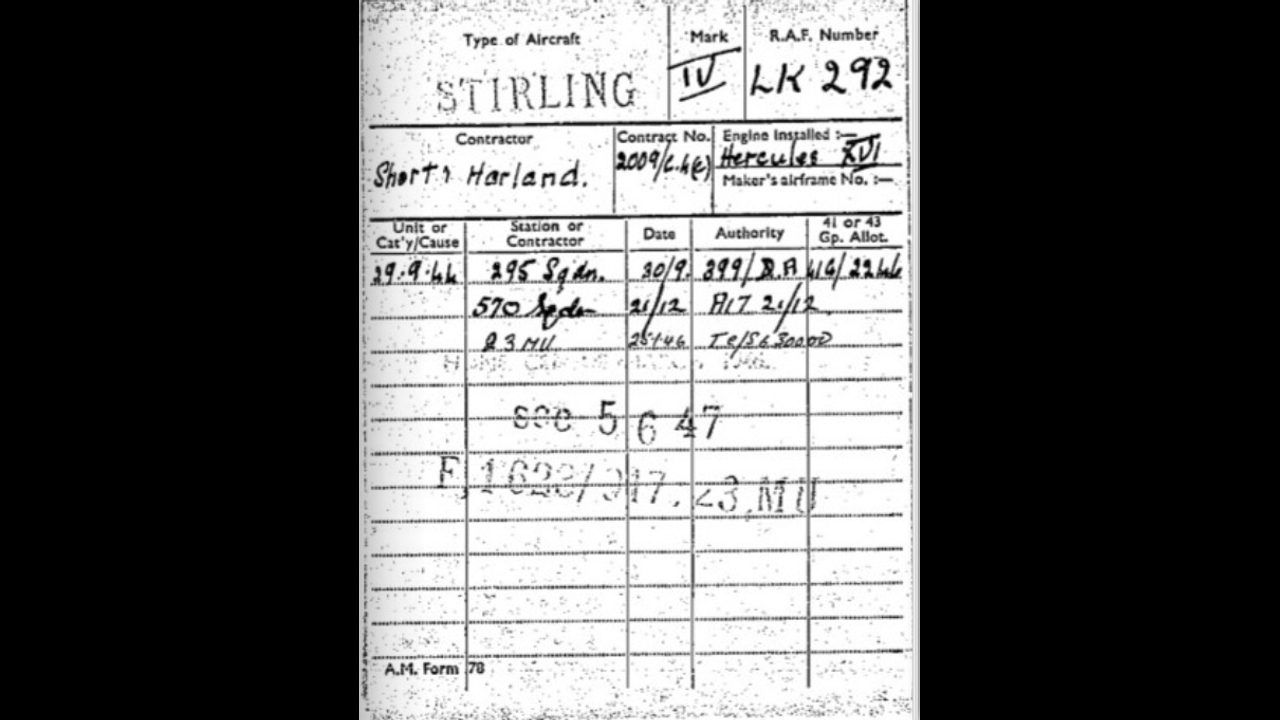 Type of Aircraft Mark R.A.F. Number
STIRLING IV LK 292
Contractor Contract No. Engine Installed :—
Short & Harland. 2009/C.4(c) Hercules XVI
Maker's airframe No. :—
Unit or Cat'y/Cause Station or Contractor Date Authority 41 or 43 Gp. Allot.
29.9.44 295 Sqdn. 30/9. 399/ 41G/
570 Sqdn 21/12 21/12.
23 MU
SOC 5 6 47
23.MU
A.M. Form 78